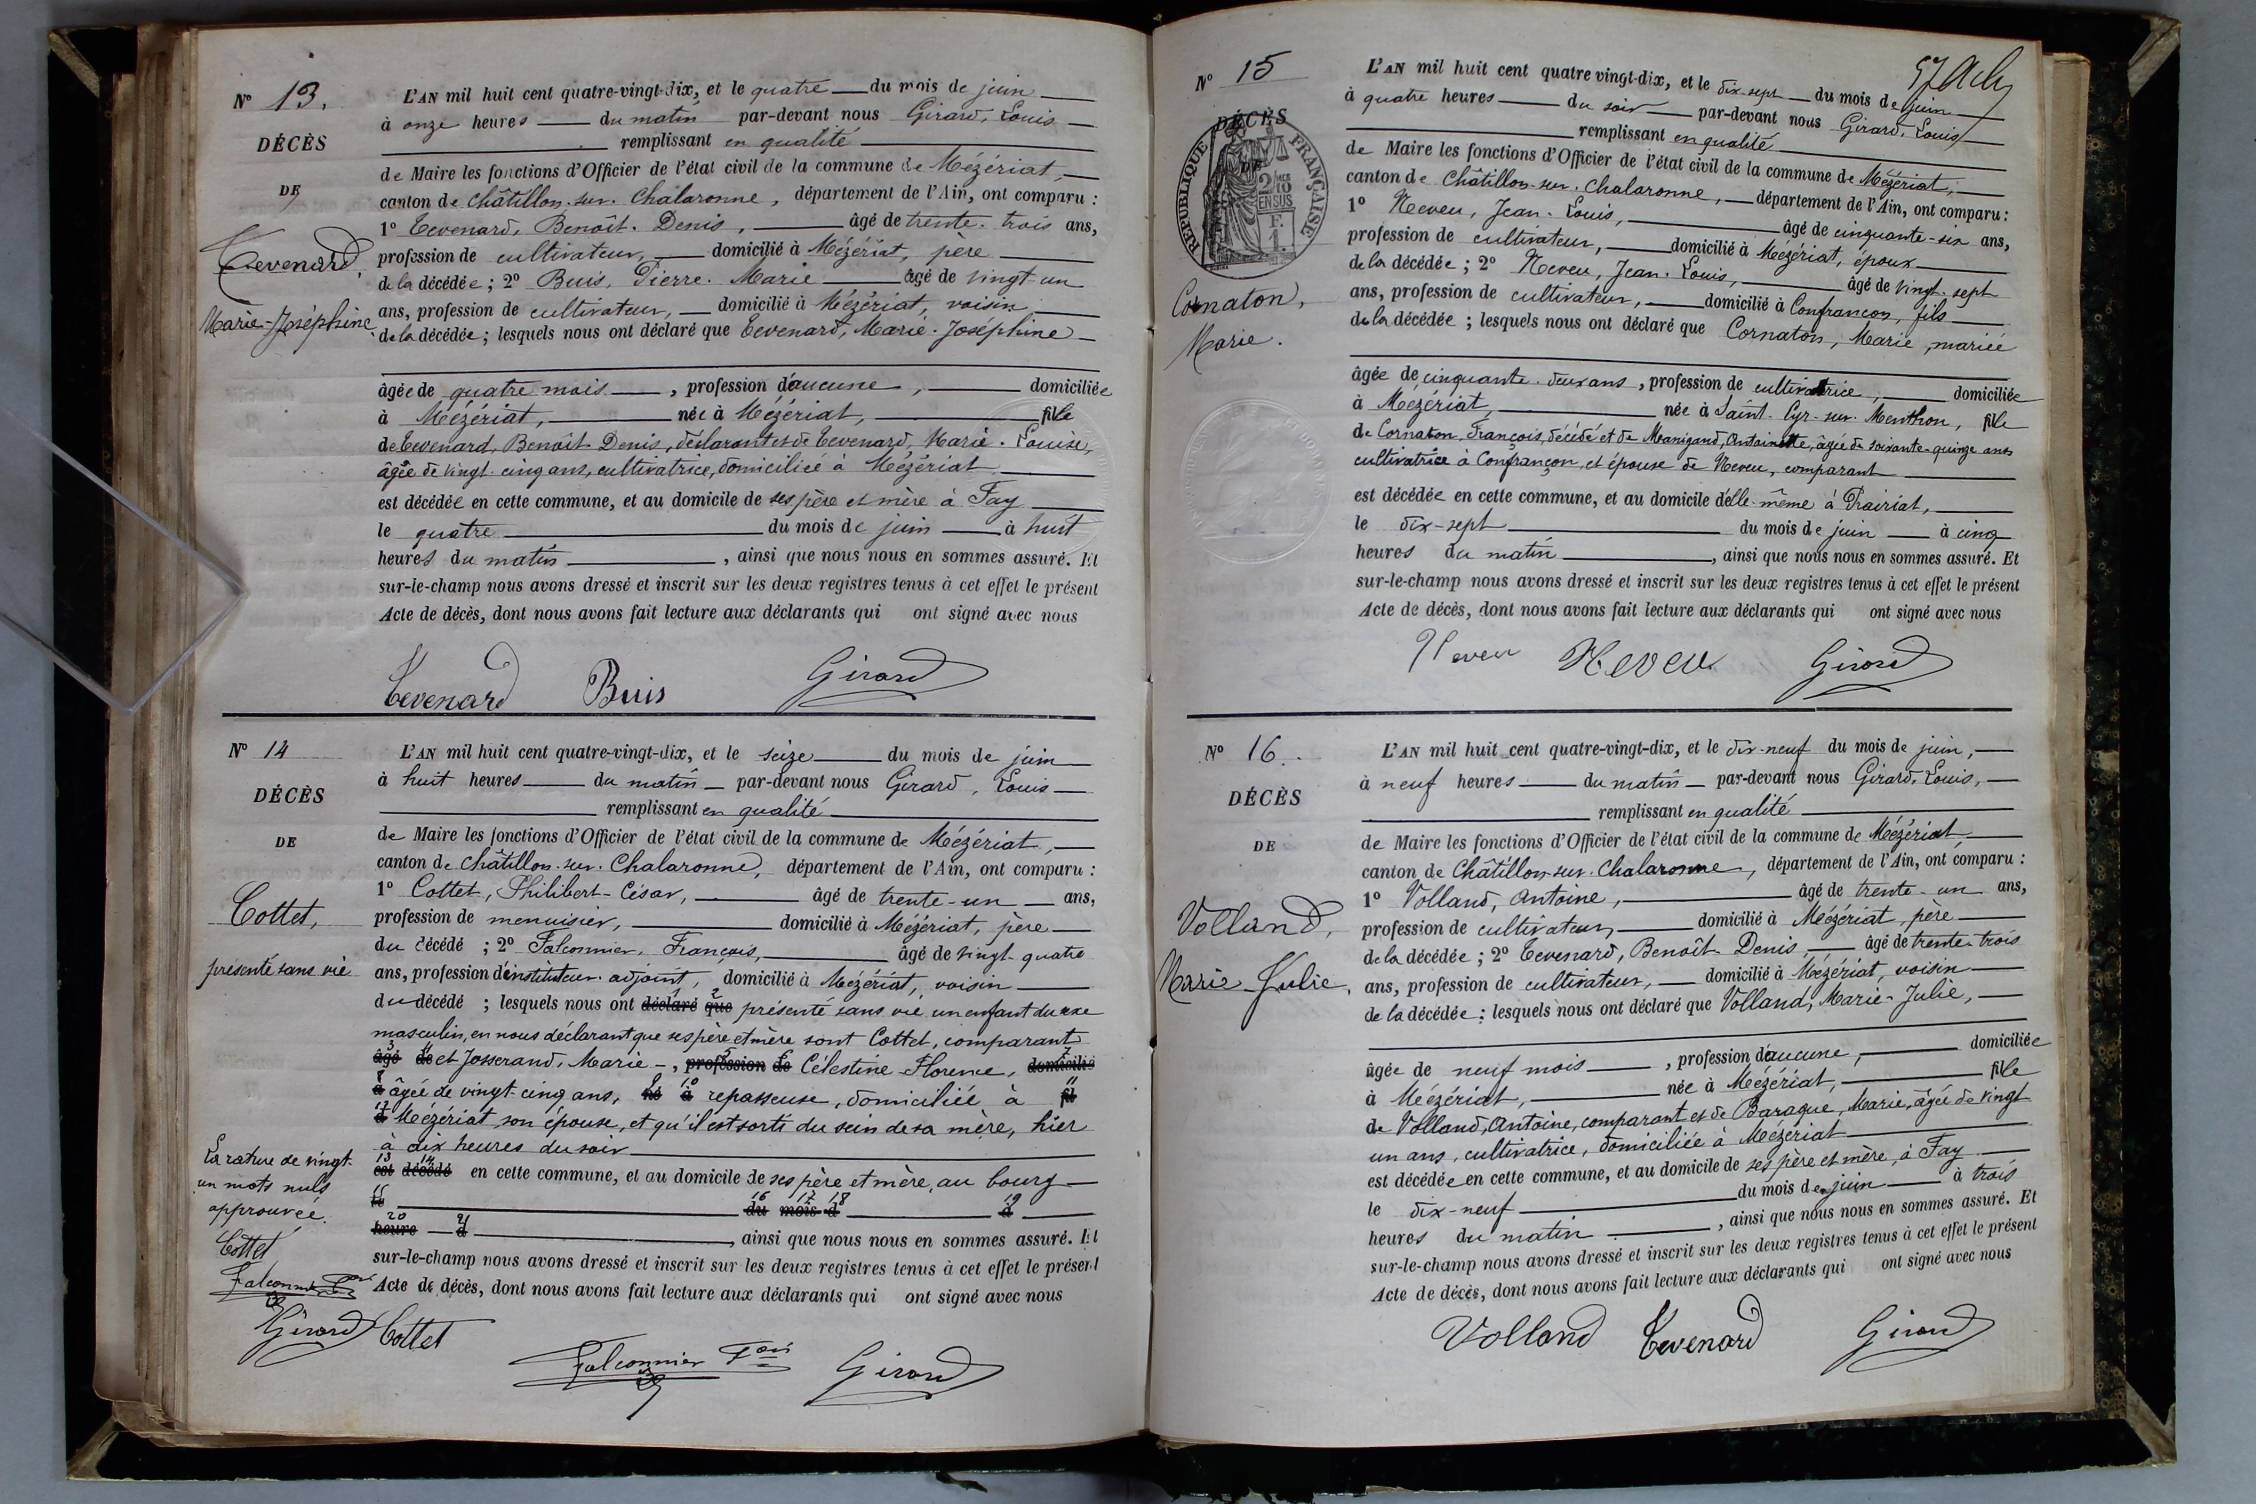 N° 13.
DÉCÈS
DE
Tevenard,
Marie-Joséphine.
L'AN mil huit cent quatre-vingt-dix, et le quatre du mois de juin
à onze heures du matin par-devant nous Girard, Louis
remplissant en qualité
de Maire les fonctions d'Officier de l'état civil de la commune de Mézériat,
canton de Châtillon-sur-Chalaronne, département de l'Ain, ont comparu :
1° Tevenard, Benoît-Denis, âgé de trente-trois ans,
profession de cultivateur, domicilié à Mézériat, père
de la décédée ; 2° Buis, Pierre-Marie âgé de vingt-un
ans, profession de cultivateur, domicilié à Mézériat, voisin
de la décédée ; lesquels nous ont déclaré que Tevenard, Marie-Joséphine
âgée de quatre mois, profession d'aucune, domiciliée
à Mézériat, née à Mézériat, fille
de Tevenard, Benoît-Denis, déclarant et de Tevenard, Marie-Louise,
âgée de vingt-cinq ans, cultivatrice, domiciliée à Mézériat
est décédée en cette commune, et au domicile de ses père et mère à Fay
le quatre du mois de juin à huit
heures du matin, ainsi que nous nous en sommes assuré. Et
sur-le-champ nous avons dressé et inscrit sur les deux registres tenus à cet effet le présent
Acte de décès, dont nous avons fait lecture aux déclarants qui ont signé avec nous
Tevenard Buis Girard
N° 14
DÉCÈS
DE
Cottet,
présenté sans vie
L'AN mil huit cent quatre-vingt-dix, et le seize du mois de juin
à huit heures du matin par-devant nous Girard, Louis
remplissant en qualité
de Maire les fonctions d'Officier de l'état civil de la commune de Mézériat,
canton de Châtillon-sur-Chalaronne, département de l'Ain, ont comparu :
1° Cottet, Philibert-César, âgé de trente-un ans,
profession de menuisier, domicilié à Mézériat, père
du décédé ; 2° Falconnier, François, âgé de vingt-quatre
ans, profession d'instituteur-adjoint, domicilié à Mézériat, voisin
du décédé ; lesquels nous ont déclaré que présenté sans vie un enfant du sexe
masculin, en nous déclarant que ses père et mère sont Cottet, comparant
âgé de et Josserand, Marie-, profession de Célestine-Florence, domicilié
à âgée de vingt-cinq ans, né à repasseuse, domiciliée à fil
d Mézériat, son épouse, et qu'il est sorti du sein de sa mère, hier
à dix heures du soir
est décédé en cette commune, et au domicile de ses père et mère, au bourg
le du mois d à
heure d, ainsi que nous nous en sommes assuré. Et
sur-le-champ nous avons dressé et inscrit sur les deux registres tenus à cet effet le présent
Acte de décès, dont nous avons fait lecture aux déclarants qui ont signé avec nous
La rature de vingt-
un mots nuls
approuvée.
Cottet
Falconnier Fçois
Girard
Cottet
Falconnier Fçois Girard
N° 15
DÉCÈS
RÉPUBLIQUE FRANÇAISE
Cornaton,
Marie.
L'AN mil huit cent quatre vingt-dix, et le dix-sept du mois de juin
à quatre heures du soir par-devant nous Girard, Louis
remplissant en qualité
de Maire les fonctions d'Officier de l'état civil de la commune de Mézériat,
canton de Châtillon-sur-Chalaronne, département de l'Ain, ont comparu :
1° Neveu, Jean-Louis, âgé de cinquante-six ans,
profession de cultivateur, domicilié à Mézériat, époux
de la décédée ; 2° Neveu, Jean-Louis, âgé de vingt-sept
ans, profession de cultivateur, domicilié à Confrançon, fils
de la décédée ; lesquels nous ont déclaré que Cornaton, Marie, mariée
âgée de cinquante-deux ans, profession de cultivatrice, domiciliée
à Mézériat, née à Saint-Cyr-sur-Menthon, fille
de Cornaton François, décédé et de Manigand, Antoinette, âgée de soixante-quinze ans
cultivatrice à Confrançon, et épouse de Neveu, comparant
est décédée en cette commune, et au domicile d'elle-même à Prairiat,
le dix-sept du mois de juin à cinq
heures du matin, ainsi que nous nous en sommes assuré. Et
sur-le-champ nous avons dressé et inscrit sur les deux registres tenus à cet effet le présent
Acte de décès, dont nous avons fait lecture aux déclarants qui ont signé avec nous
Neveu Neveu Girard
N° 16.
DÉCÈS
DE
Volland,
Marie-Julie,
L'AN mil huit cent quatre-vingt-dix, et le dix-neuf du mois de juin,
à neuf heures du matin par-devant nous Girard, Louis,
remplissant en qualité
de Maire les fonctions d'Officier de l'état civil de la commune de Mézériat,
canton de Châtillon-sur-Chalaronne, département de l'Ain, ont comparu :
1° Volland, Antoine, âgé de trente-un ans,
profession de cultivateur, domicilié à Mézériat, père
de la décédée ; 2° Tevenard, Benoît-Denis, âgé de trente-trois
ans, profession de cultivateur, domicilié à Mézériat, voisin
de la décédée ; lesquels nous ont déclaré que Volland, Marie-Julie,
âgée de neuf mois, profession d'aucune, domiciliée
à Mézériat, née à Mézériat, fille
de Volland, Antoine, comparant et de Baraque, Marie, âgée de vingt-
un ans, cultivatrice, domiciliée à Mézériat
est décédée en cette commune, et au domicile de ses père et mère, à Fay
le dix-neuf du mois de juin à trois
heures du matin, ainsi que nous nous en sommes assuré. Et
sur-le-champ nous avons dressé et inscrit sur les deux registres tenus à cet effet le présent
Acte de décès, dont nous avons fait lecture aux déclarants qui ont signé avec nous
Volland Tevenard Girard